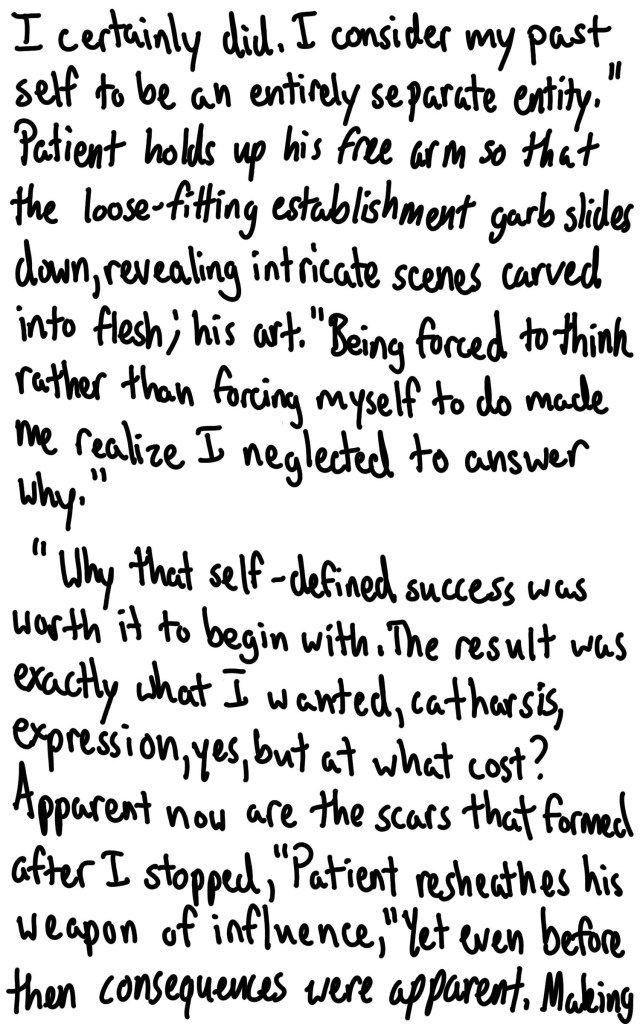 I certainly did. I consider my past
self to be an entirely separate entity."
Patient holds up his free arm so that
the loose-fitting establishment garb slides
down, revealing intricate scenes carved
into flesh; his art. "Being forced to think
rather than forcing myself to do made
me realize I neglected to answer
why."
"Why that self-defined success was
worth it to begin with. The result was
exactly what I wanted, catharsis,
expression, yes, but at what cost?
Apparent now are the scars that formed
after I stopped," Patient resheathes his
weapon of influence, "Yet even before
then consequences were apparent. Making